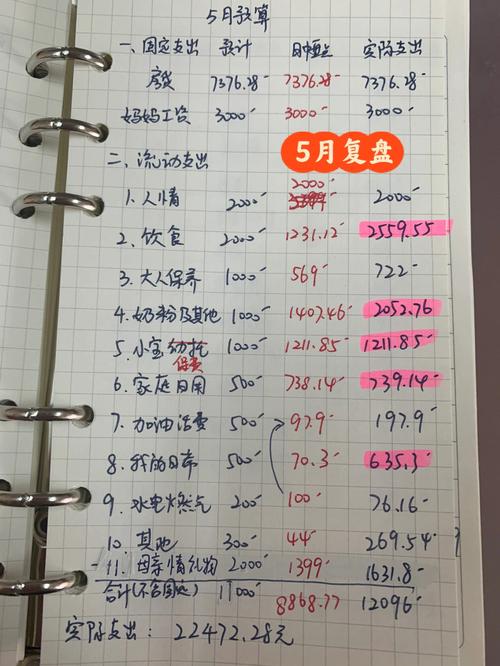 5月预算
一、固定支出 预计 月中盘点 实际支出
房贷 7376.28 7376.28 7376.28
妈妈工资 3000 3000 3000
5月复盘
二、流动支出
2000
1.人情 2000 2000
2.饮食 2000 1231.12 2559.55
3.大人保养 1000 569 722
4.奶粉及其他 1000 1407.46 2052.76
5.小宝幼托 1000 1211.85 1211.85
保费
6.家庭日用 500 738.14 739.14
7.加油话费 500 97.9 197.9
8.我的日常 500 70.3 635.3
9.水电燃气 200 100 76.16
10.其他 300 44 269.54
11.母亲情礼物 2000 1399 1631.8
合计(不含固定) 11000 8868.77 12096
实际支出: 22472.28元